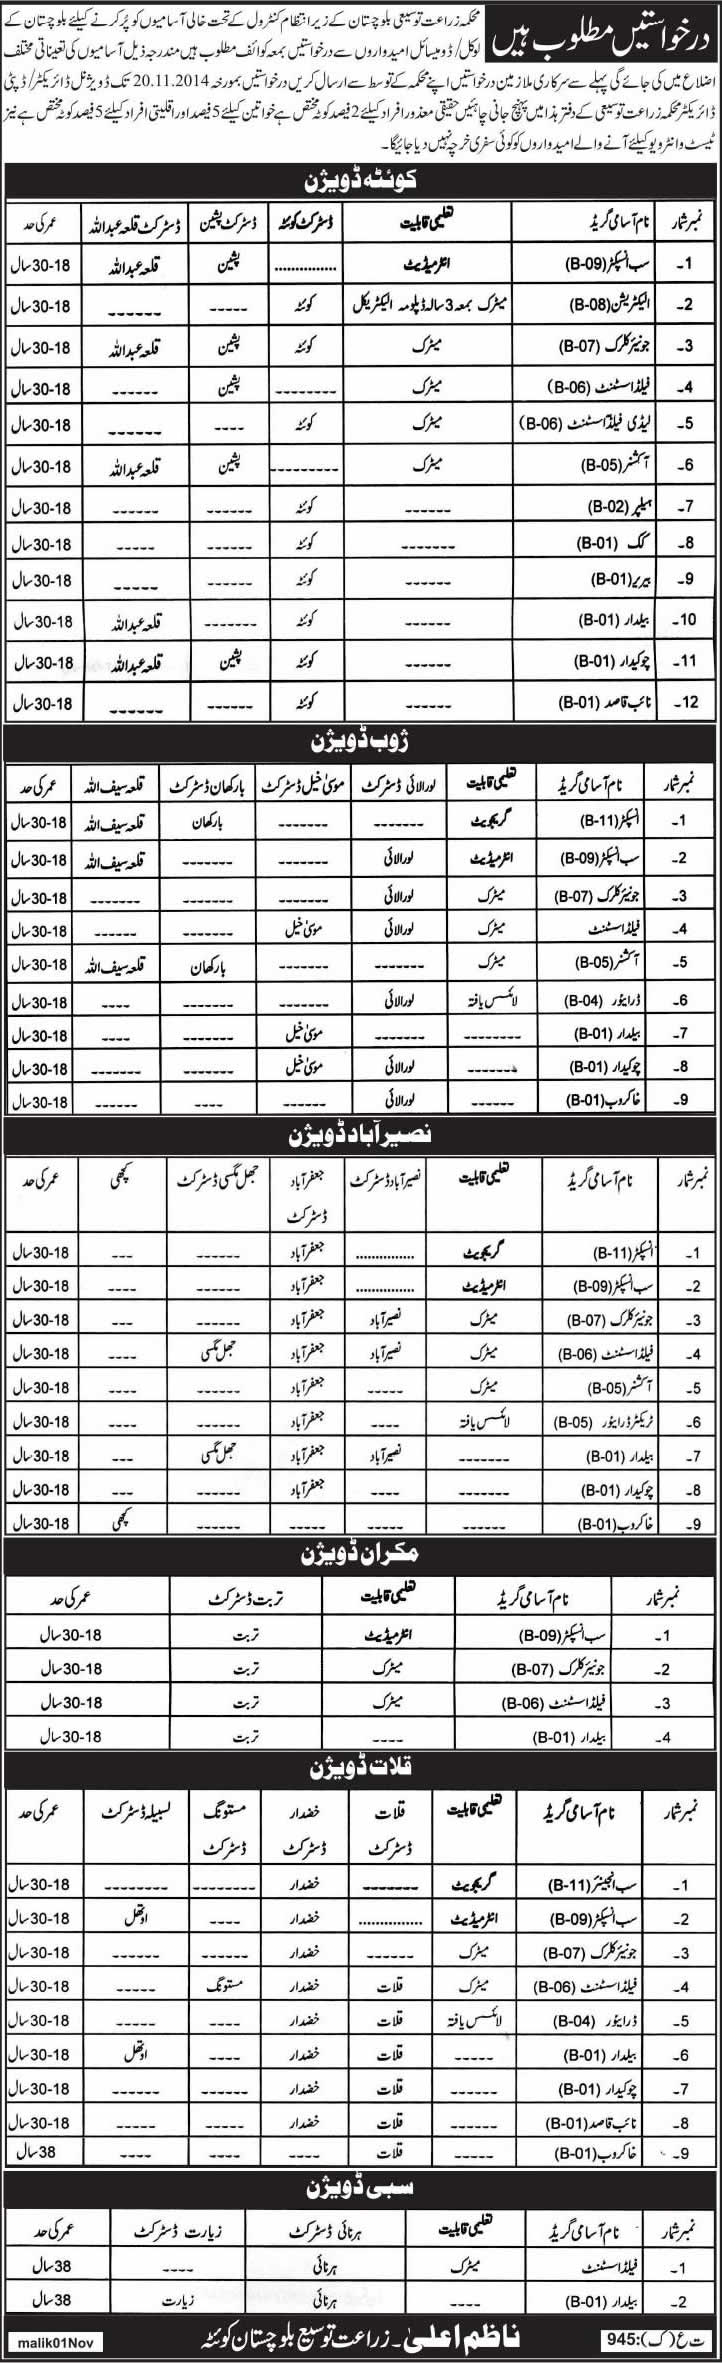 درخواستیں مطلوب ہیں
محکمہ زراعت توسیعی بلوچستان کے زیر انتظام کنٹرول کے تحت خالی آسامیوں کو پُر کرنے کیلئے بلوچستان کے
لوکل/ ڈومیسائل امیدواروں سے درخواستیں بمعہ کوائف مطلوب ہیں مندرجہ ذیل آسامیوں کی تعیناتی مختلف
اضلاع میں کی جائے گی پہلے سے سرکاری ملازمین درخواستیں اپنے محکمہ کے توسط سے ارسال کریں درخواستیں بمورخہ 20.11.2014 تک ڈویژنل ڈائریکٹر/ ڈپٹی
ڈائریکٹر محکمہ زراعت توسیعی کے دفتر ہذا میں پہنچ جانی چاہئیں حقیقی معذور افراد کیلئے 2 فیصد کوٹہ مختص ہے خواتین کیلئے 5 فیصد اور اقلیتی افراد کیلئے 5 فیصد کوٹہ مختص ہے نیز
ٹیسٹ و انٹرویو کیلئے آنے والے امیدواروں کو کوئی سفری خرچہ نہیں دیا جائیگا۔
کوئٹہ ڈویژن
نمبر شمار نام آسامی گریڈ تعلیمی قابلیت ڈسٹرکٹ کوئٹہ ڈسٹرکٹ پشین ڈسٹرکٹ قلعہ عبداللہ عمر کی حد
1۔ سب انسپکٹر (B-09) انٹرمیڈیٹ ............... پشین قلعہ عبداللہ 18-30 سال
2۔ الیکٹریشن (B-08) میٹرک بمعہ 3 سالہ ڈپلومہ الیکٹریکل کوئٹہ ----- ------ 18-30 سال
3۔ جونیئر کلرک (B-07) میٹرک کوئٹہ پشین قلعہ عبداللہ 18-30 سال
4۔ فیلڈ اسسٹنٹ (B-06) میٹرک -------- پشین ------ 18-30 سال
5۔ لیڈی فیلڈ اسسٹنٹ (B-06) میٹرک کوئٹہ ---- ------ 18-30 سال
6۔ آکشنر (B-05) میٹرک --------- پشین قلعہ عبداللہ 18-30 سال
7۔ ہیلپر (B-02) ------ کوئٹہ ------ ------ 18-30 سال
8۔ کک (B-01) ------- کوئٹہ ------ ----- 18-30 سال
9۔ بیرر (B-01) ------ کوئٹہ ------ ----- 18-30 سال
10۔ بیلدار (B-01) ------ کوئٹہ ------- قلعہ عبداللہ 18-30 سال
11۔ چوکیدار (B-01) ------ کوئٹہ پشین قلعہ عبداللہ 18-30 سال
12۔ نائب قاصد (B-01) ------ کوئٹہ ------ ------ 18-30 سال
ژوب ڈویژن
نمبر شمار نام آسامی گریڈ تعلیمی قابلیت لورالائی ڈسٹرکٹ موسیٰ خیل ڈسٹرکٹ بارکھان ڈسٹرکٹ قلعہ سیف اللہ عمر کی حد
1۔ انسپکٹر (B-11) گریجویٹ ------- ------- بارکھان قلعہ سیف اللہ 18-30 سال
2۔ سب انسپکٹر (B-09) انٹرمیڈیٹ لورالائی ------- ------- قلعہ سیف اللہ 18-30 سال
3۔ جونیئر کلرک (B-07) میٹرک لورالائی ------- ------- ------- 18-30 سال
4۔ فیلڈ اسسٹنٹ میٹرک لورالائی موسیٰ خیل ------- ------ 18-30 سال
5۔ آکشنر (B-05) میٹرک ------- ------- بارکھان قلعہ سیف اللہ 18-30 سال
6۔ ڈرائیور (B-04) لائسنس یافتہ لورالائی ------- ------- ---- 18-30 سال
7۔ بیلدار (B-01) -------- ------- موسیٰ خیل ------- ---- 18-30 سال
8۔ چوکیدار (B-01) ------- لورالائی موسیٰ خیل ------- ------- 18-30 سال
9۔ خاکروب (B-01) ------ لورالائی ------ ---- ------ 18-30 سال
نصیر آباد ڈویژن
نمبر شمار نام آسامی گریڈ تعلیمی قابلیت نصیر آباد ڈسٹرکٹ جعفر آباد ڈسٹرکٹ جھل مگسی ڈسٹرکٹ کچھی عمر کی حد
1۔ انسپکٹر (B-11) گریجویٹ ............... جعفر آباد ------ --- 18-30 سال
2۔ سب انسپکٹر (B-09) انٹرمیڈیٹ ............... جعفر آباد ------ ---- 18-30 سال
3۔ جونیئر کلرک (B-07) میٹرک نصیر آباد جعفر آباد ------ --- 18-30 سال
4۔ فیلڈ اسسٹنٹ (B-06) میٹرک نصیر آباد جعفر آباد جھل مگسی ---- 18-30 سال
5۔ آکشنر (B-05) میٹرک ----- جعفر آباد ------ ---- 18-30 سال
6۔ ٹریکٹر ڈرائیور (B-05) لائسنس یافتہ ---- جعفر آباد ------ ---- 18-30 سال
7۔ بیلدار (B-01) ------- نصیر آباد جعفر آباد جھل مگسی --- 18-30 سال
8۔ چوکیدار (B-01) ------- ---- جعفر آباد ------ --- 18-30 سال
9۔ خاکروب (B-01) ------ ----- ----- ------ کچھی 18-30 سال
مکران ڈویژن
نمبر شمار نام آسامی گریڈ تعلیمی قابلیت تربت ڈسٹرکٹ عمر کی حد
1۔ سب انسپکٹر (B-09) انٹرمیڈیٹ تربت 18-30 سال
2۔ جونیئر کلرک (B-07) میٹرک تربت 18-30 سال
3۔ فیلڈ اسسٹنٹ (B-06) میٹرک تربت 18-30 سال
4۔ بیلدار (B-01) ---- تربت 18-30 سال
قلات ڈویژن
نمبر شمار نام آسامی گریڈ تعلیمی قابلیت قلات ڈسٹرکٹ خضدار ڈسٹرکٹ مستونگ ڈسٹرکٹ لسبیلہ ڈسٹرکٹ عمر کی حد
1۔ سب انجینئر (B-11) گریجویٹ ------- خضدار -------- -------- 18-30 سال
2۔ سب انسپکٹر (B-09) انٹرمیڈیٹ ............... خضدار ---- اوتھل 18-30 سال
3۔ جونیئر کلرک (B-07) میٹرک ------ خضدار ------ ------ 18-30 سال
4۔ فیلڈ اسسٹنٹ (B-06) میٹرک قلات خضدار مستونگ ----- 18-30 سال
5۔ ڈرائیور (B-04) لائسنس یافتہ قلات خضدار ---- ----- 18-30 سال
6۔ بیلدار (B-01) ----- قلات خضدار ---- اوتھل 18-30 سال
7۔ چوکیدار (B-01) ------ قلات خضدار ------ ------ 18-30 سال
8۔ نائب قاصد (B-01) ------ قلات خضدار ---- ----- 18-30 سال
9۔ خاکروب (B-01) ----- قلات ---- ---- ---- 38 سال
سبی ڈویژن
نمبر شمار نام آسامی گریڈ تعلیمی قابلیت ہرنائی ڈسٹرکٹ زیارت ڈسٹرکٹ عمر کی حد
1۔ فیلڈ اسسٹنٹ میٹرک ہرنائی ---- 38 سال
2۔ بیلدار (B-01) ---- ہرنائی زیارت 38 سال
ت ع (ک): 945 ناظم اعلیٰ۔ زراعت توسیع بلوچستان کوئٹہ malik01Nov